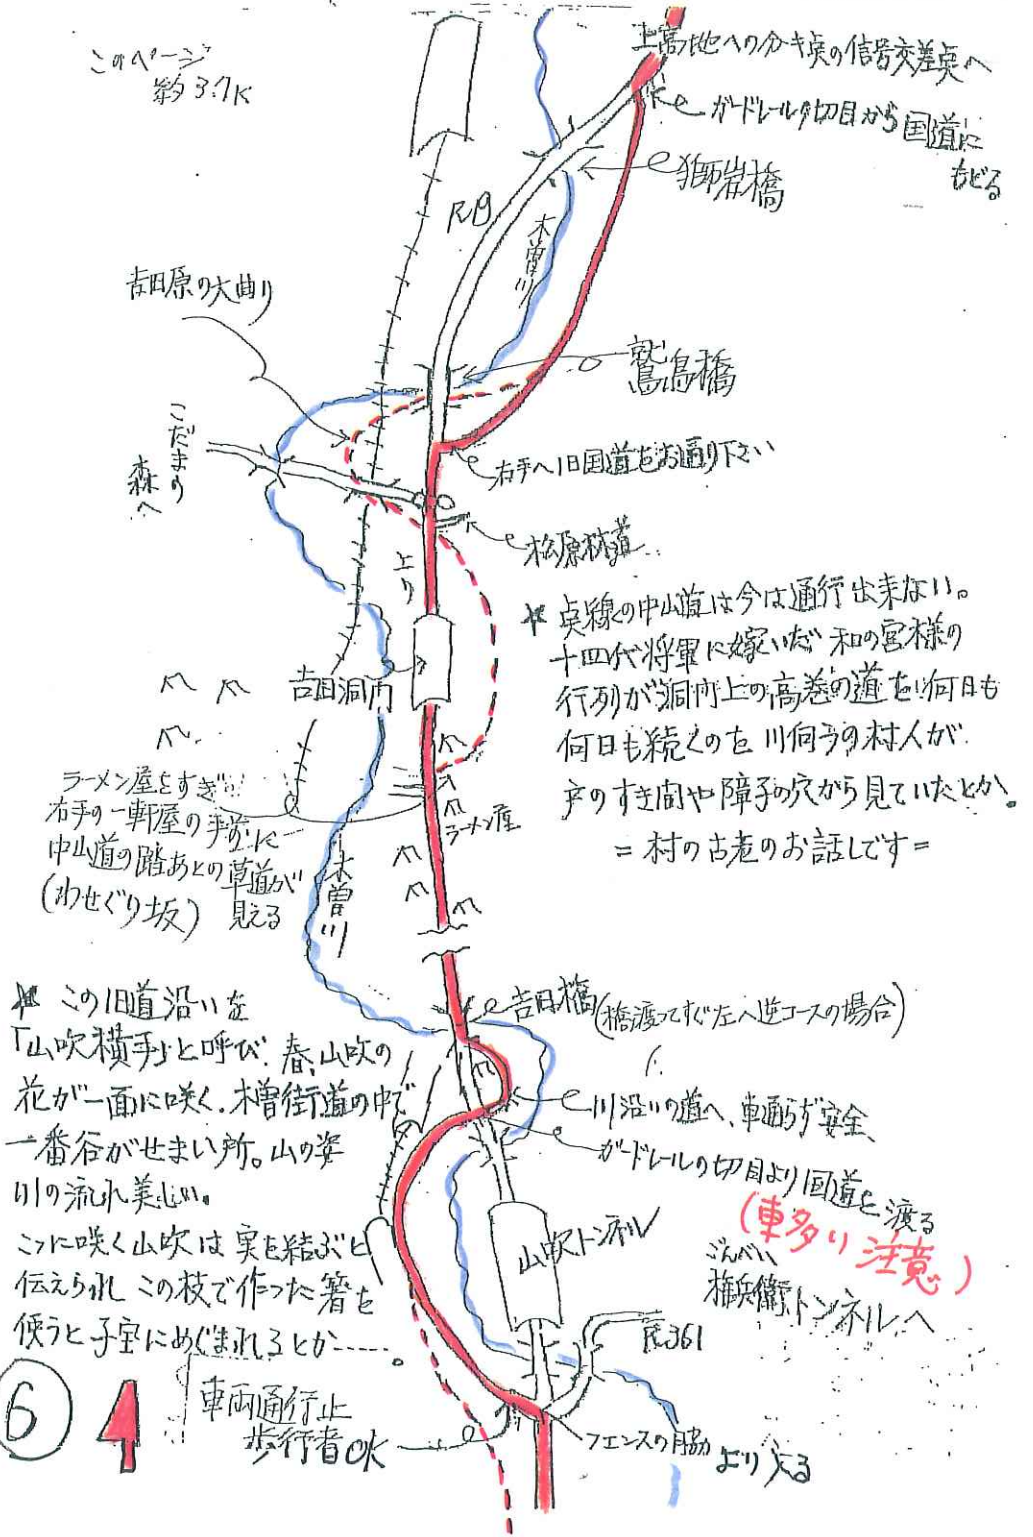 このページ
約3.7K
上高地への分キ点の信号交差点へ
ガードレールの切目から国道に
もどる
獅岩橋
R19
木曽川
吉田原の大曲り
鷲鳥橋
こだまの
森へ
右手へ旧国道をお通り下さい
松原林道
上り
＊ 点線の中山道は今は通行出来ない。
十四代将軍に嫁いだ和の宮様の
行列が洞門上の高巻の道を何日も
何日も続くのを川向うの村人が
戸のすき間や障子の穴から見ていたとか。
＝村の古老のお話しです＝
吉田洞門
ラーメン屋をすぎ
右手の一軒屋の手前に
中山道の踏あとの草道が
(わせぐり坂) 見える
ラーメン屋
木曽川
＊ この旧道沿いを
「山吹横手」と呼び、春、山吹の
花が一面に咲く。木曽街道の中で
一番谷がせまい所。山の姿
川の流れ美しい。
ここに咲く山吹は実を結ぶと
伝えられ この枝で作った箸を
使うと子宝にめぐまれるとか-----。
吉田橋(橋渡ってすぐ左へ逆コースの場合)
川沿いの道へ、車通らず安全、
ガードレールの切目より国道を渡る
(車多い 注意)
山吹トンネル
ごんべい
権兵衛トンネルへ
R361
6
車両通行止
歩行者OK
フェンスの脇より入る